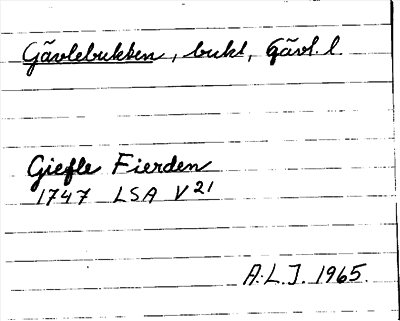 Gävlebukten, bukt, Gävl. l.
Giefle Fierden
1747 LSA V21
A.L.J. 1965.